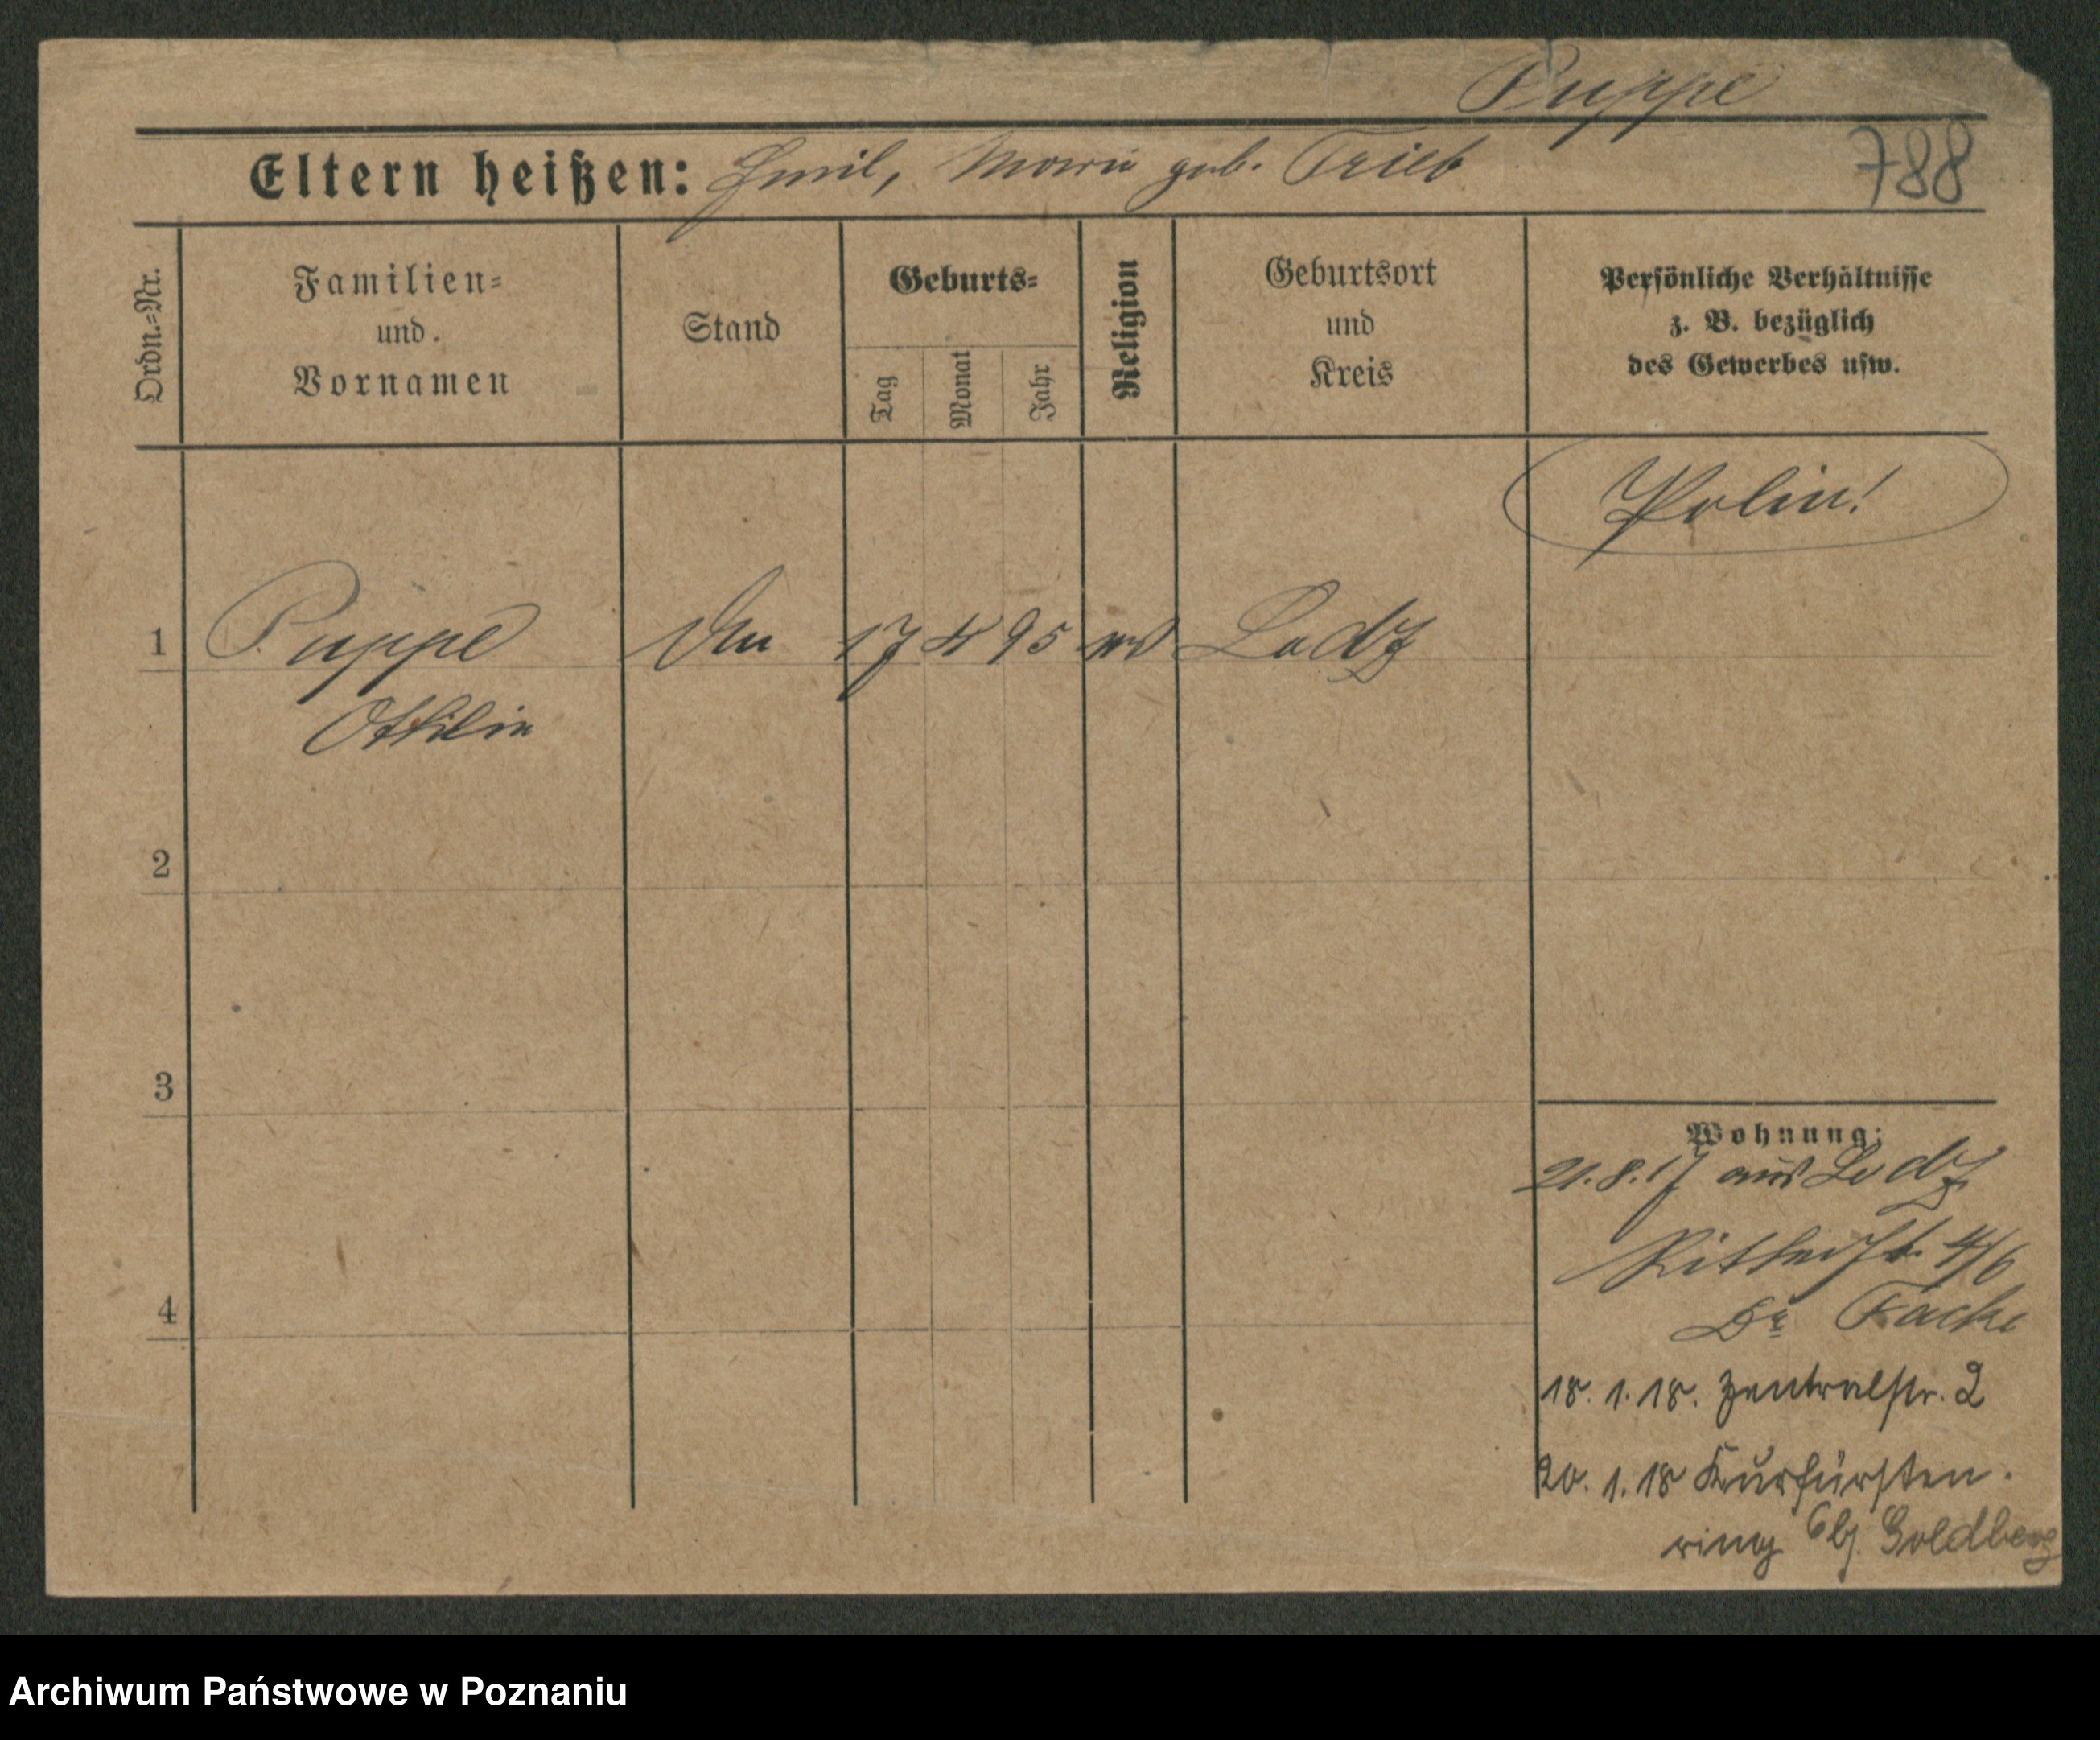 Puppe
Eltern heißen: Emil, Marie geb. Trieb
788
Ordn.=Nr.
Familien=
und
Vornamen
Stand
Geburts=
Tag
Monat
Jahr
Religion
Geburtsort
und
Kreis
Persönliche Verhältnisse
z. B. bezüglich
des Gewerbes usw.
Polin!
1 Puppe 17 4 95 Lodz
Ottilie
2
3
4
Wohnung:
21.8.17 aus Lodz
4/6
Dr
18. 1. 18. Zentralstr. 2
20. 1. 18 Kurfürsten
ring 6 bj. Goldberg
Archiwum Państwowe w Poznaniu